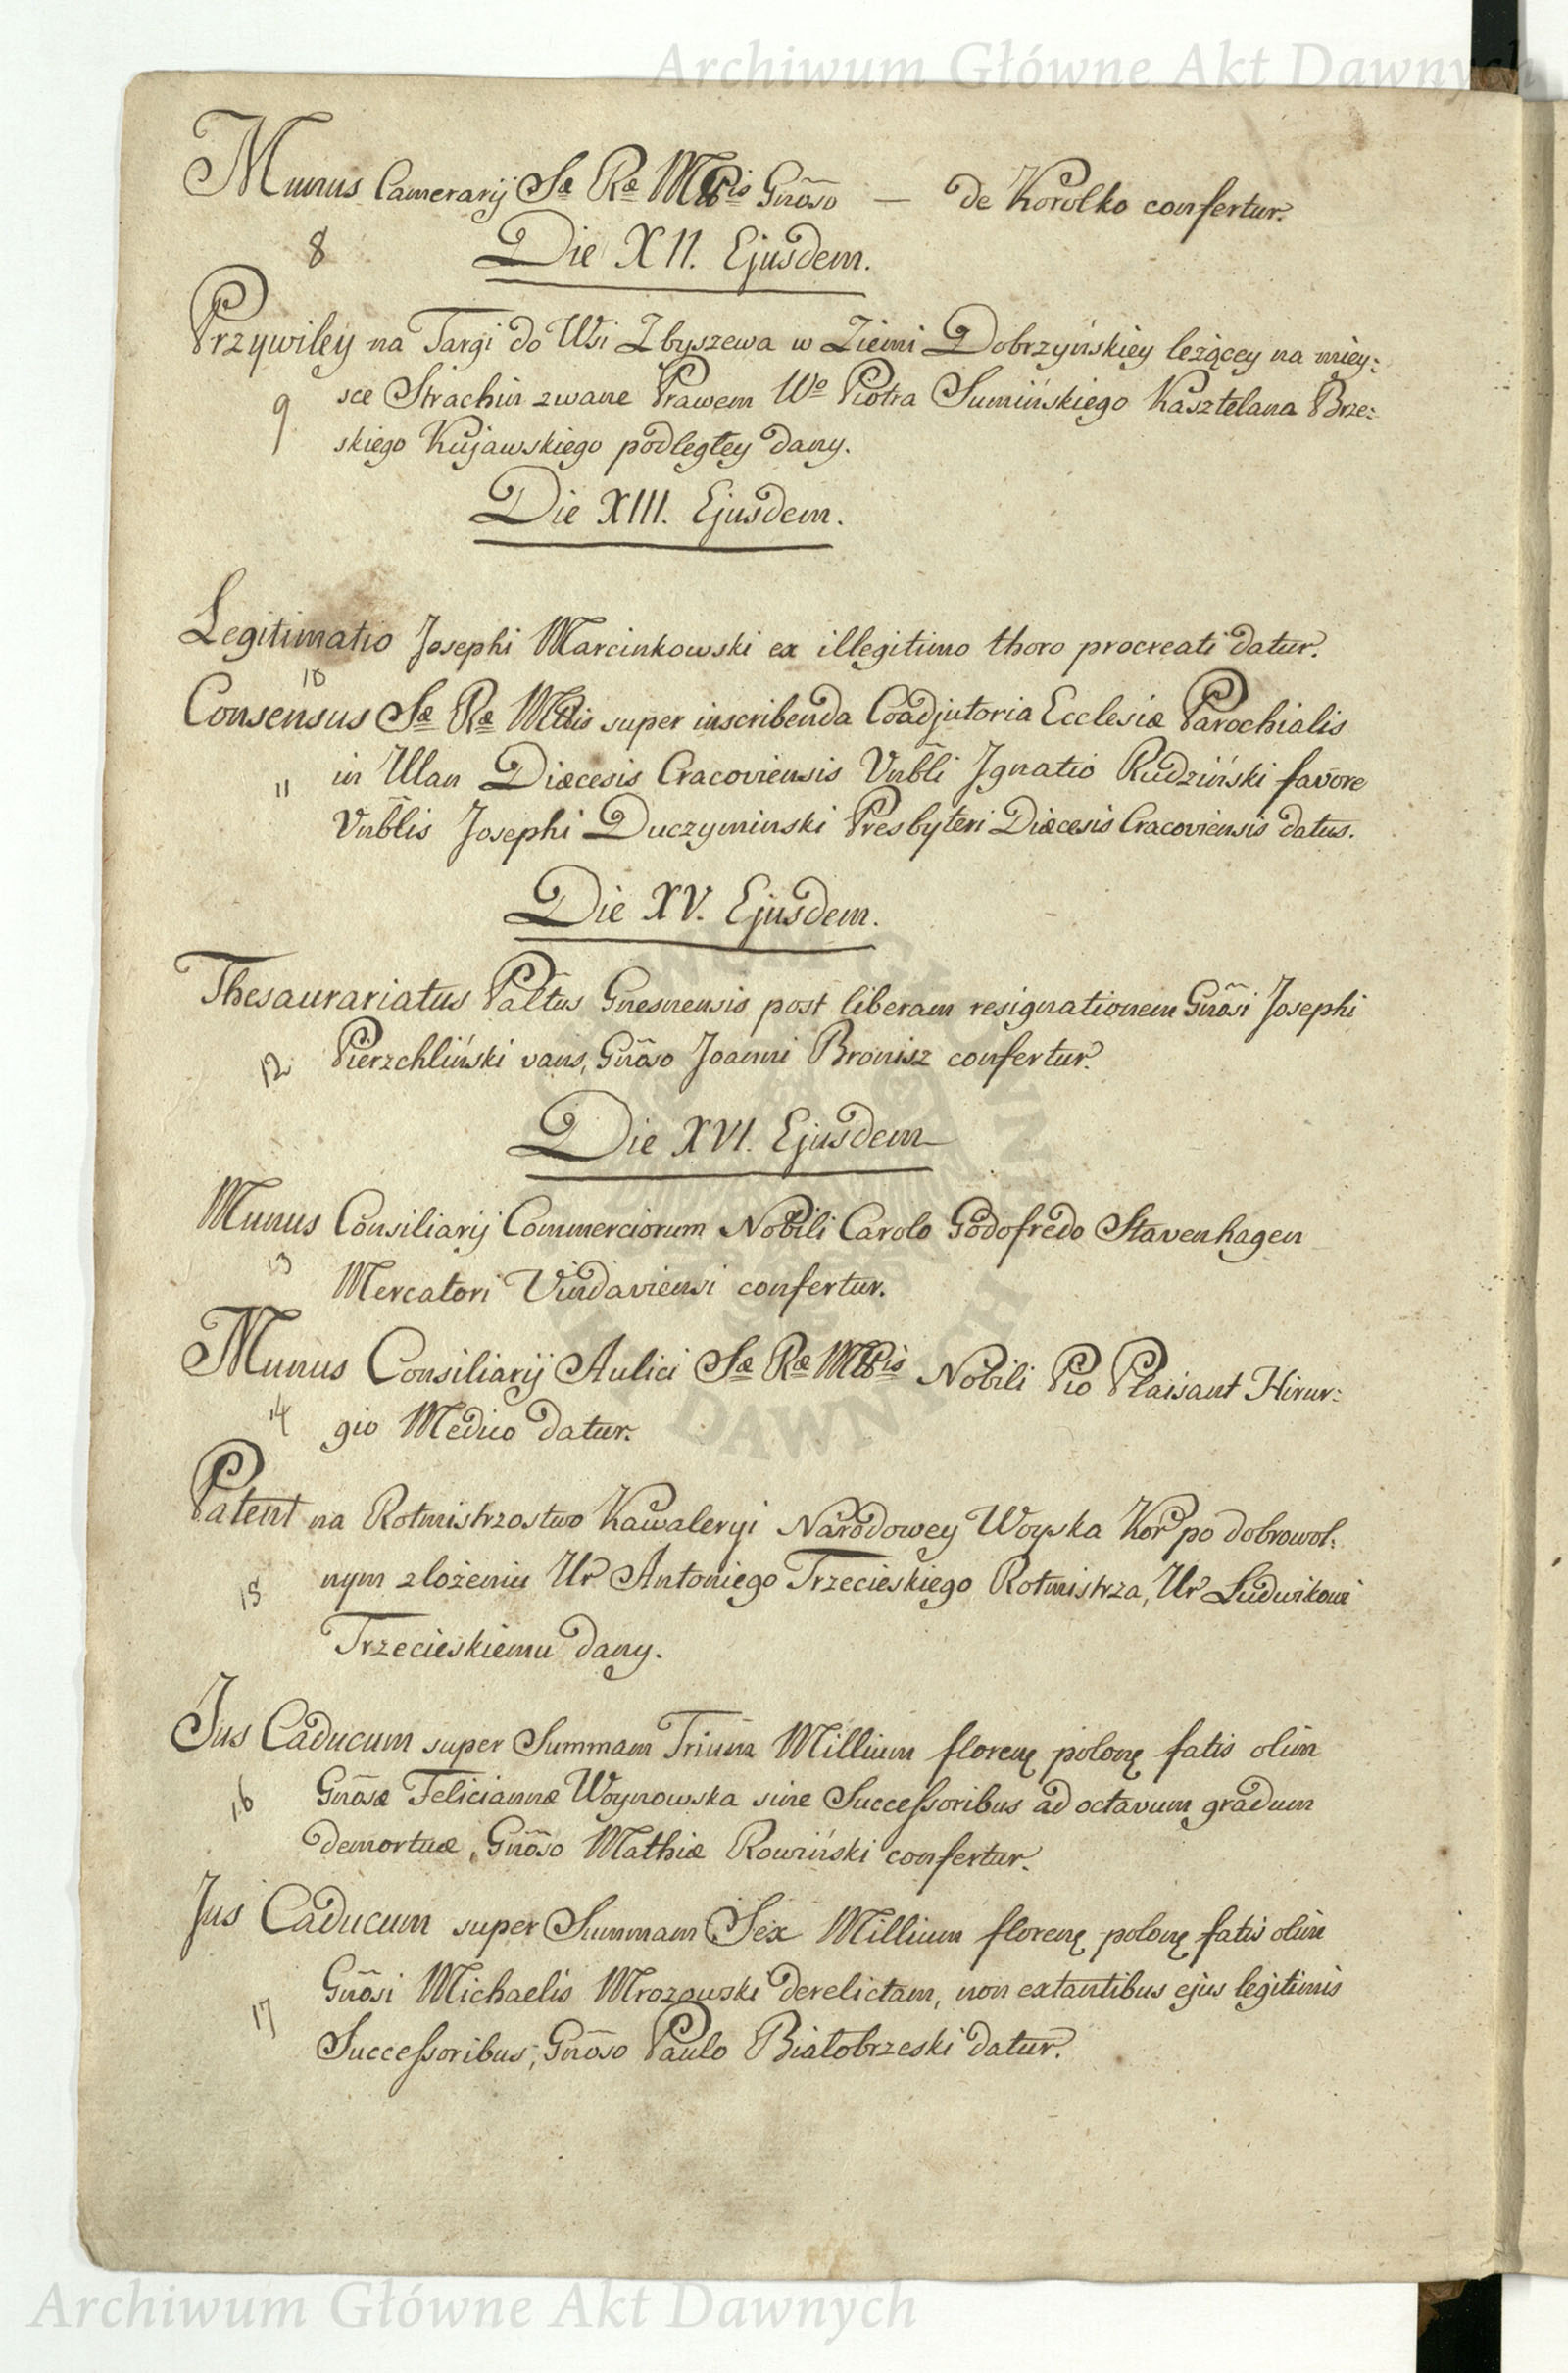 Archiwum Główne Akt Dawnych
Munus Camerarij Sæ Ræ Mttis Gnõso — de Korolko confertur.
8
Die XII. Ejusdem.
Przywiley na Targi do Wsi Zbyszewa w Ziemi Dobrzyńskiey leżącey na miey:
9 sce Strachin zwane Prawem Wo Piotra Sumińskiego Kasztelana Brze:
skiego Kujawskiego podległey dany.
Die XIII. Ejusdem.
Legitimatio Josephi Marcinkowski ex illegitimo thoro procreati datur.
10
Consensus Sæ Ræ Mttis super inscribenda Coadjutoria Ecclesiæ Parochialis
11 in Ulan Diæcesis Cracoviensis Vnbli Ignatio Rudziński favore
Vnblis Josephi Duczyminski Presbyteri Diæcesis Cracoviensis datus.
Die XV. Ejusdem.
Thesaurariatus Paltus Gnesnensis post liberam resignationem Gnõsi Josephi
12 Pierzchliński vans, Gnõso Joanni Bronisz confertur.
Die XVI. Ejusdem
Munus Consiliarij Commerciorum Nobili Carolo Godofredo Stavenhagen
13
Mercatori Vindaviensi confertur.
Munus Consiliarij Aulici Sæ Ræ Mttis Nobili Pio Plaisant Hirur:
14 gio Medico datur.
Patent na Rotmistrzostwo Kawaleryi Narodowey Woyska Kor po dobrowol:
15 nym złożeniu Ur Antoniego Trzecieskiego Rotmistrza, Ur Ludwikowi
Trzecieskiemu dany.
Jus Caducum super Summam Trium Millium florenę polonę fatis olim
16 Gnõsæ Feliciannæ Woynowska sine Successoribus ad octavum gradum
demortuæ, Gnõso Mathiæ Rowiński confertur.
Jus Caducum super Summam Sex Millium florenę polonę fatis olim
Gnõsi Michaelis Mrozowski derelictam, non extantibus ejus legitimis
17
Successoribus, Gnõso Paulo Białobrzeski datur.
Archiwum Główne Akt Dawnych